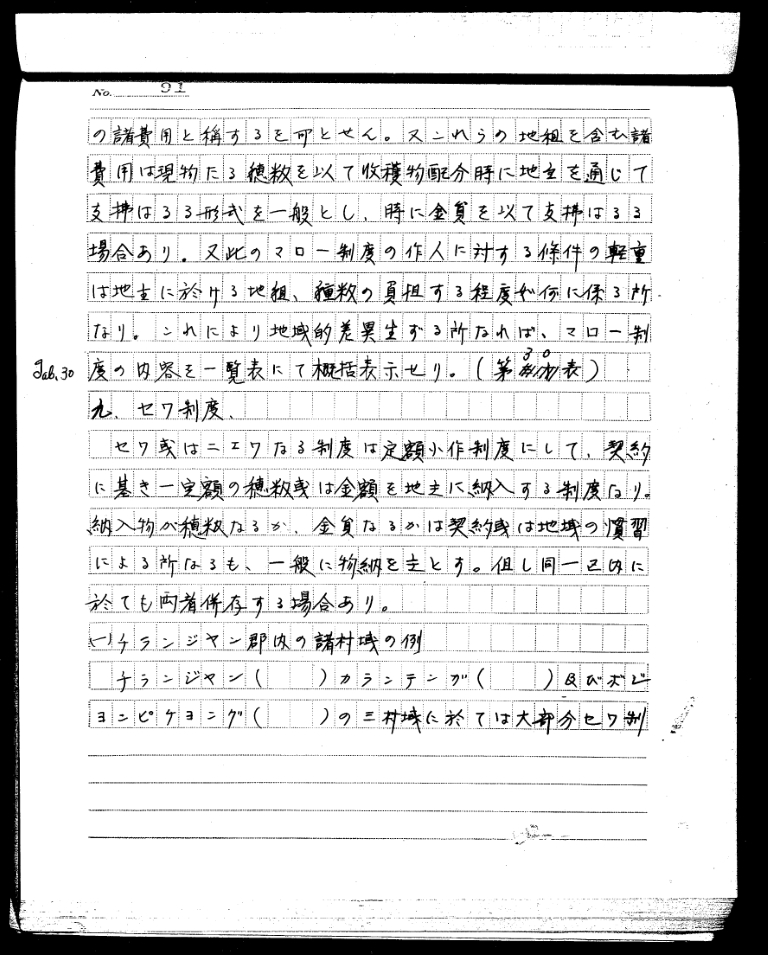 No. 91
の諸費用と称するを可とせん。又これらの地租を含む諸
費用は現物たる穂数を以て収穫物配分時に地主を通じて
支拂はるる形式を一般とし、時に金貨を以て支拂はるる
場合あり。又此のマロー制度の作人に対する條件の軽重
は地主に於ける地租、種数の負担する程度如何に係る所
なり。これにより地域的差異生ずる所なれば、マロー制
Tab.30 度の内容を一覧表にて概括表示せり。(第30表)
九、セワ制度、
セワ或はニエワなる制度は定額小作制度にして、契約
に基き一定額の穂数或は金額を地主に納入する制度なり。
納入物が穂数なるか、金貨なるかは契約或は地域の慣習
による所なるも、一般に物納を主とす。但し同一区内に
於ても両者併存する場合あり。
(一)チランジャン郡内の諸村域の例
チランジャン( )カランテンガ( )及びボビ
ヨンピケヨング( )の三村域に於ては大部分セワ制